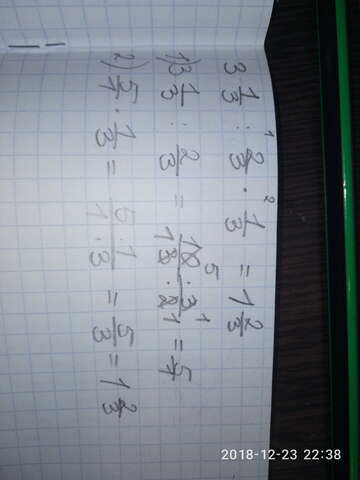 3 1/3 : 2/3 · 1/3 = 1 2/3
1 2
1) 3 1/3 : 2/3 = 10 · 3 / 3 · 2 = 5/1
5 1
1 1
2) 5/1 · 1/3 = 5 · 1 / 1 · 3 = 5/3 = 1 2/3
2018-12-23 22:38